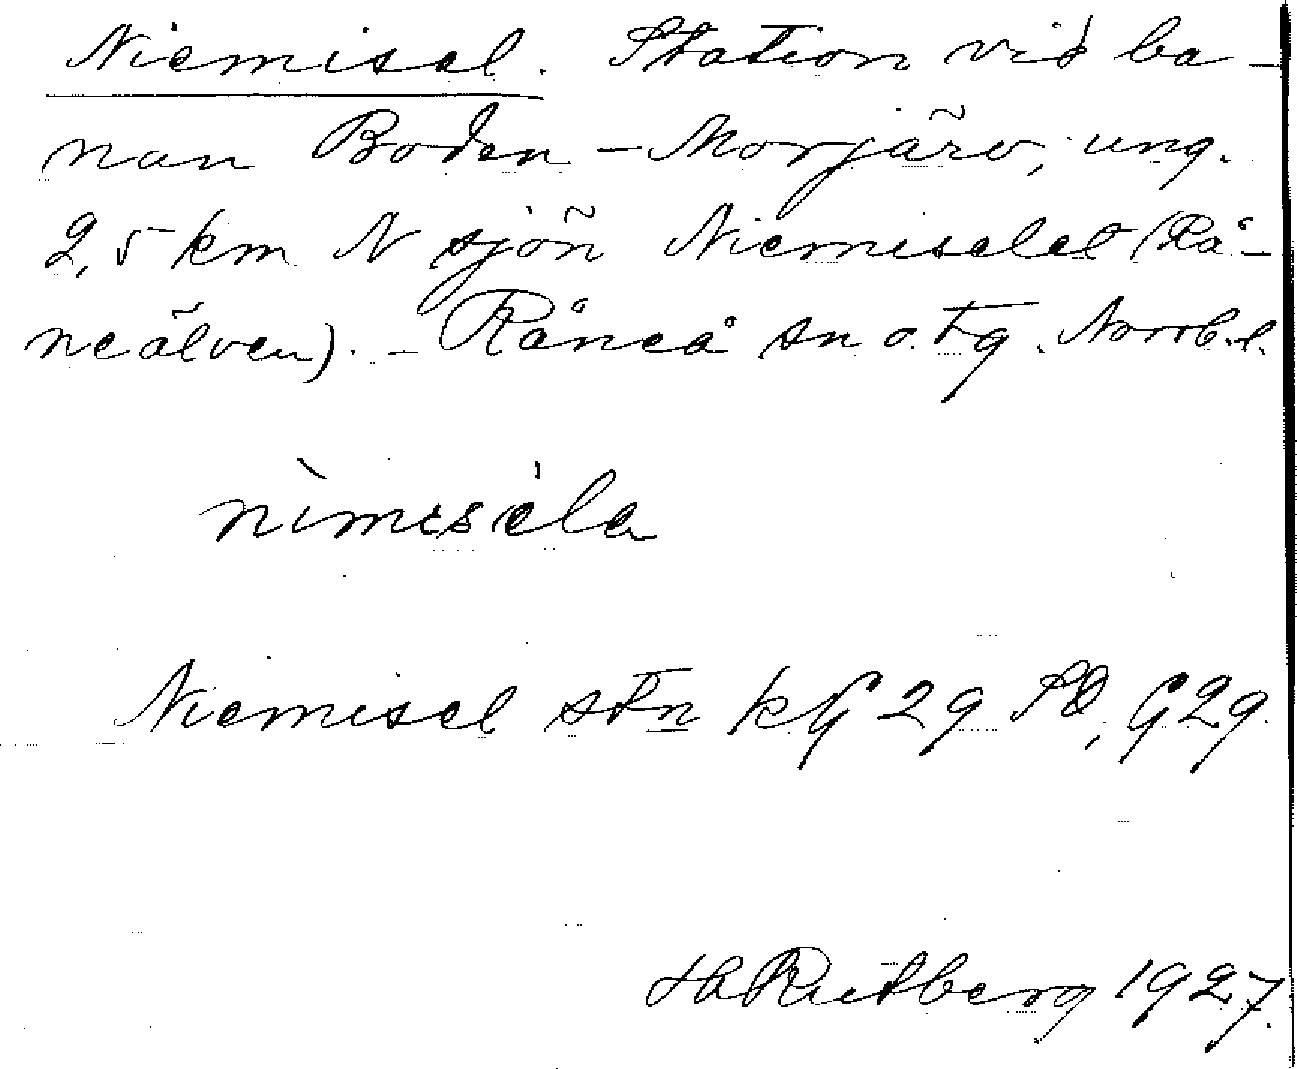 Niemisel. Station vid ba-
nan Boden - Morjärv, ung.
2,5 km N sjön Niemiselet (Rå-
neälven). - Råneå sn o. tg. Norrb. l.
nìmisela
Niemisel stn kG 29 SO, G 29.
H Rutberg 1927.